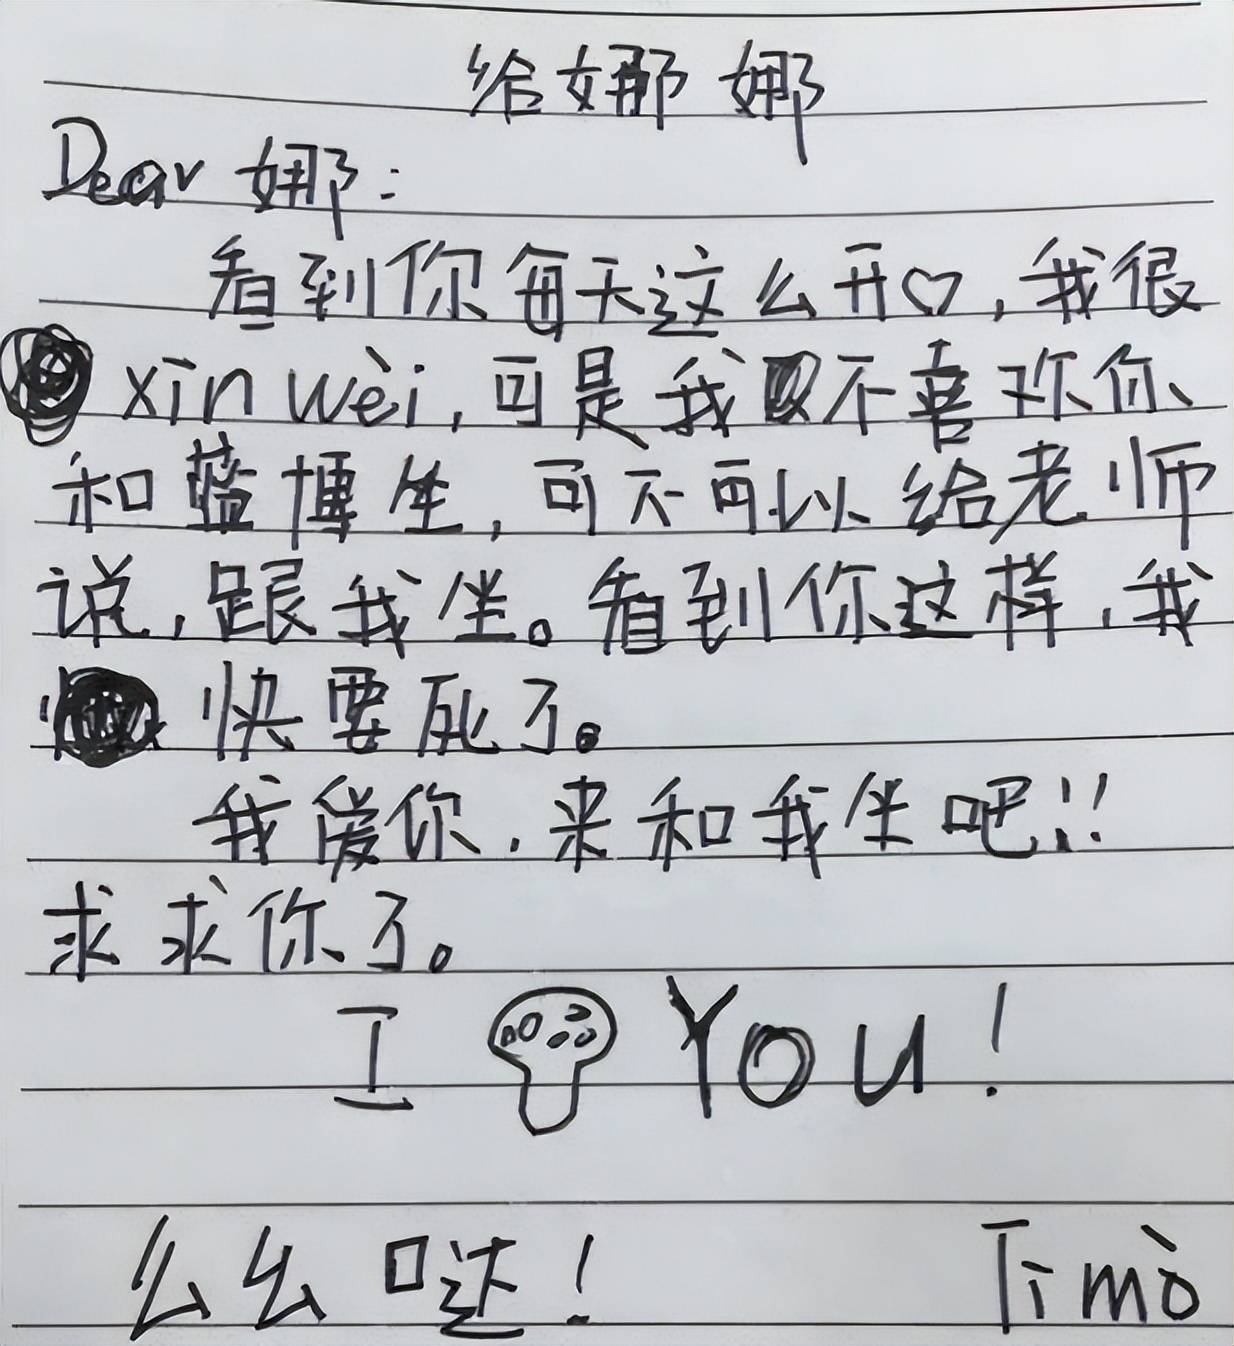 给娜娜
Dear 娜:
看到你每天这么开♡,我很
xīn wèi,可是我不喜欢你
和蓝博坐,可不可以给老师
说,跟我坐。看到你这样,我
快要死了。
我爱你.来和我坐吧!!
求求你了。
I You!
么么哒!
Timò